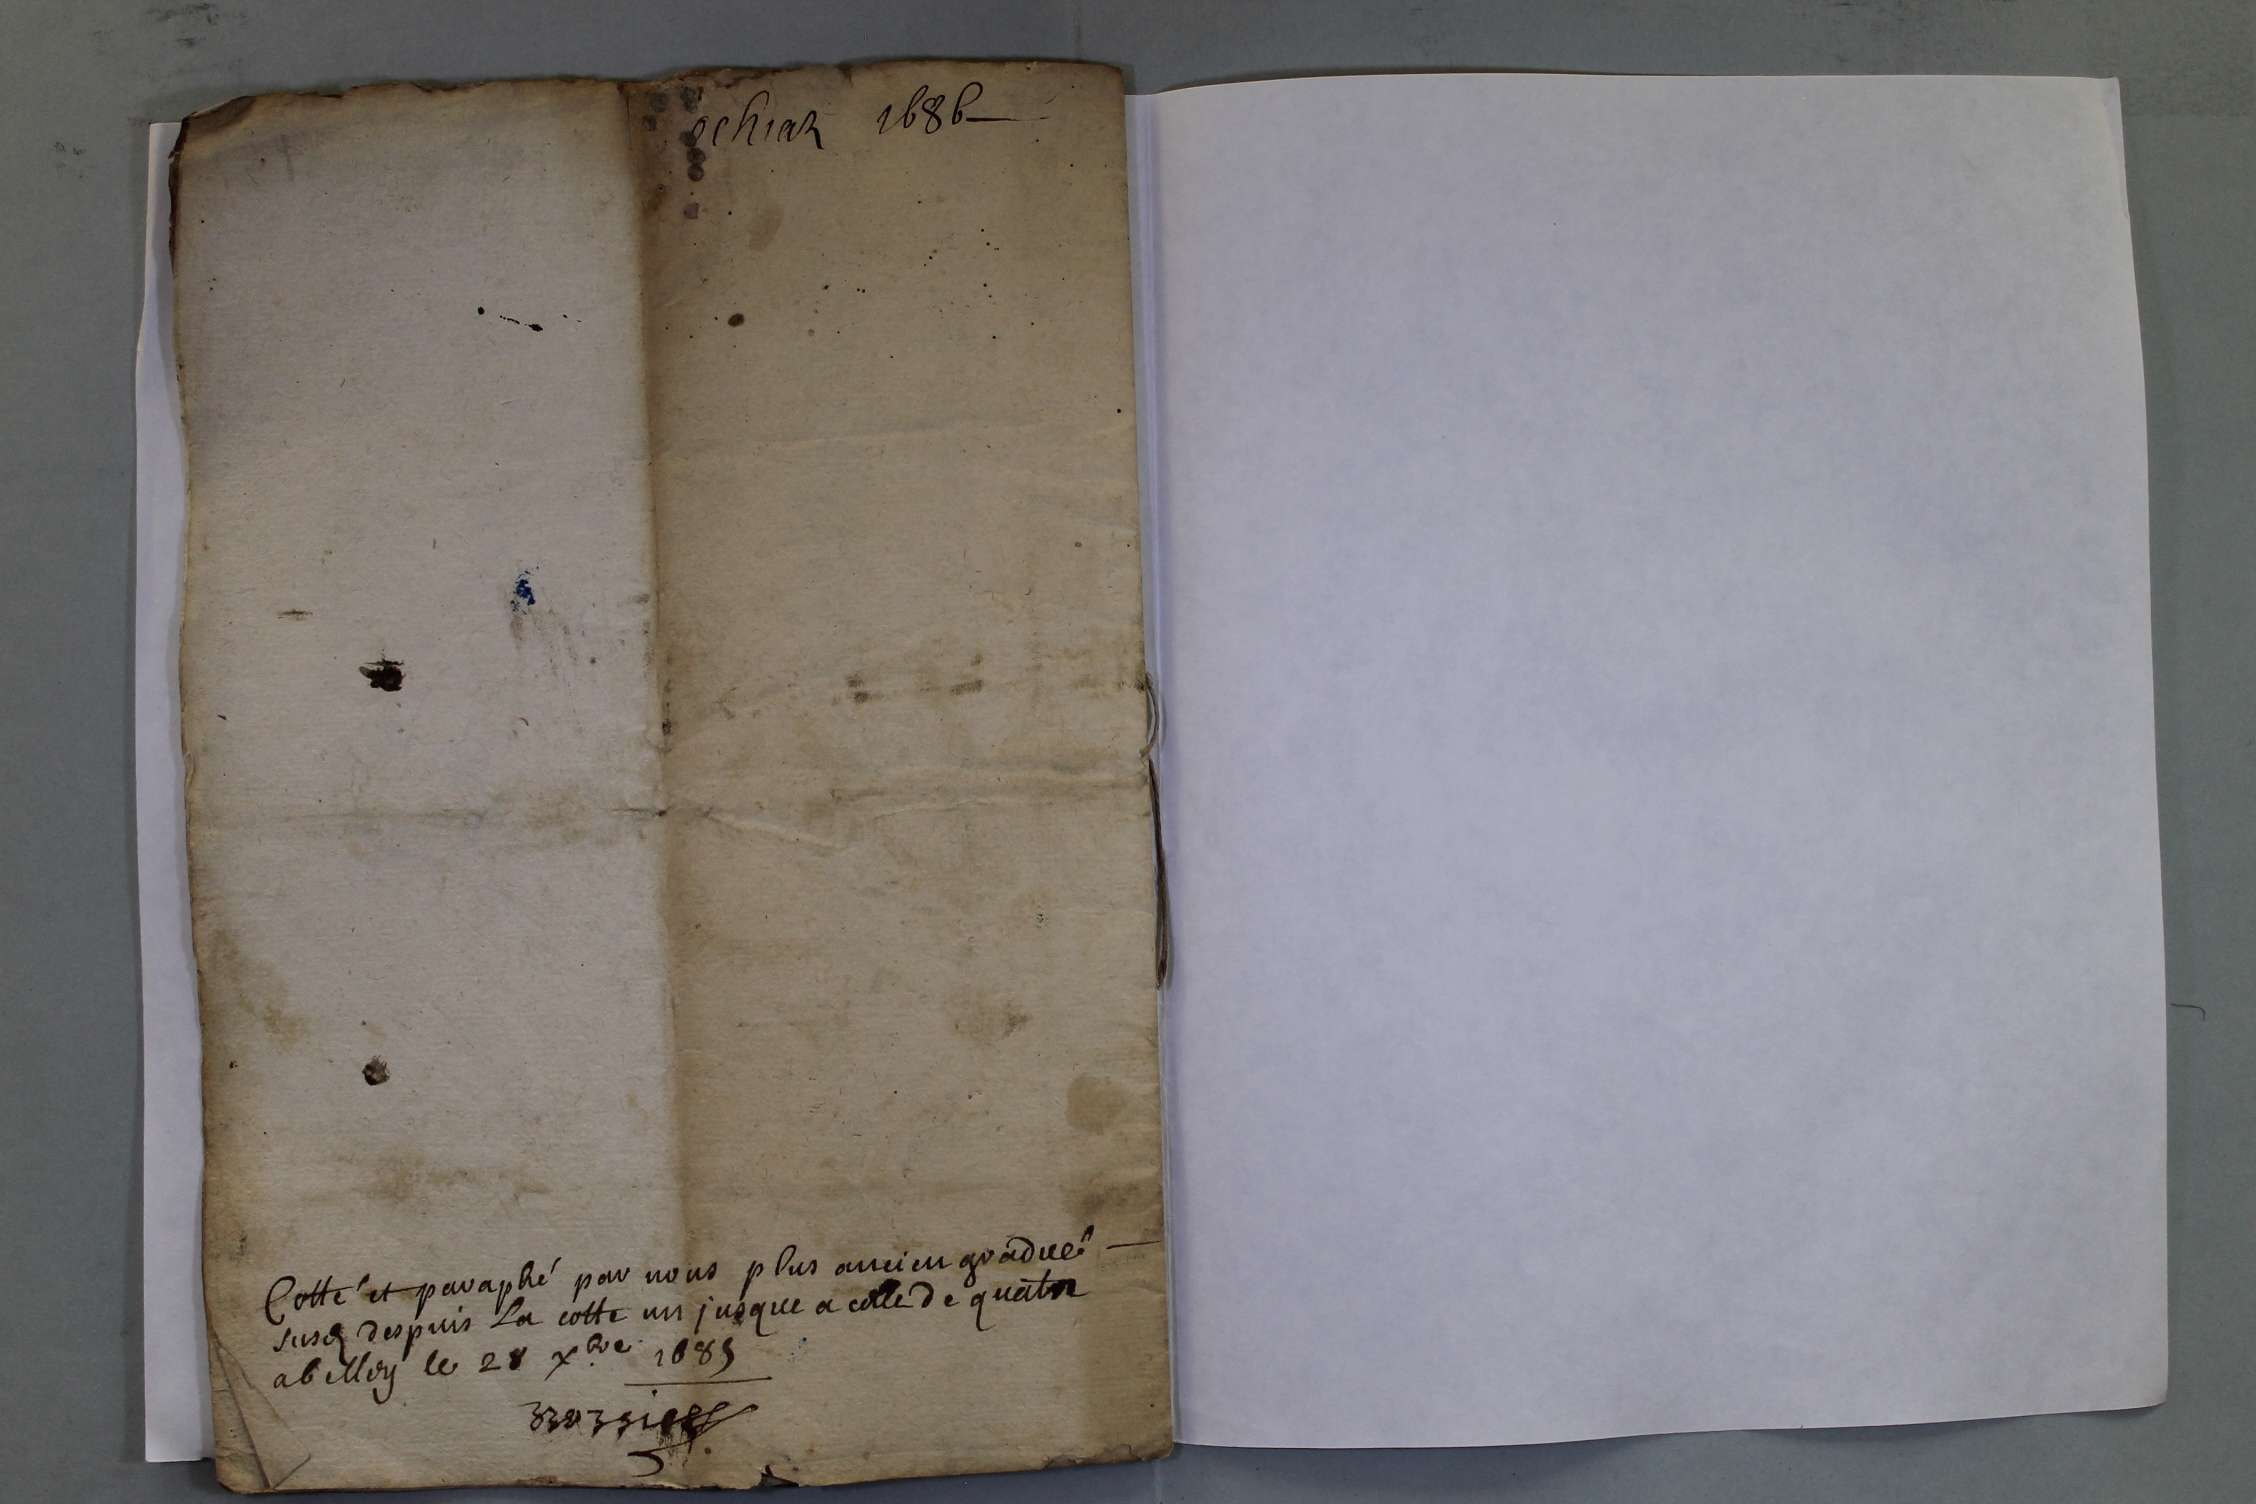 ochiaz 1686
Cotté et paraphé par nous plus ancien gradué
susd despuis La cotte un jusque a celle de quatre
a belley le 28 xbre 1685